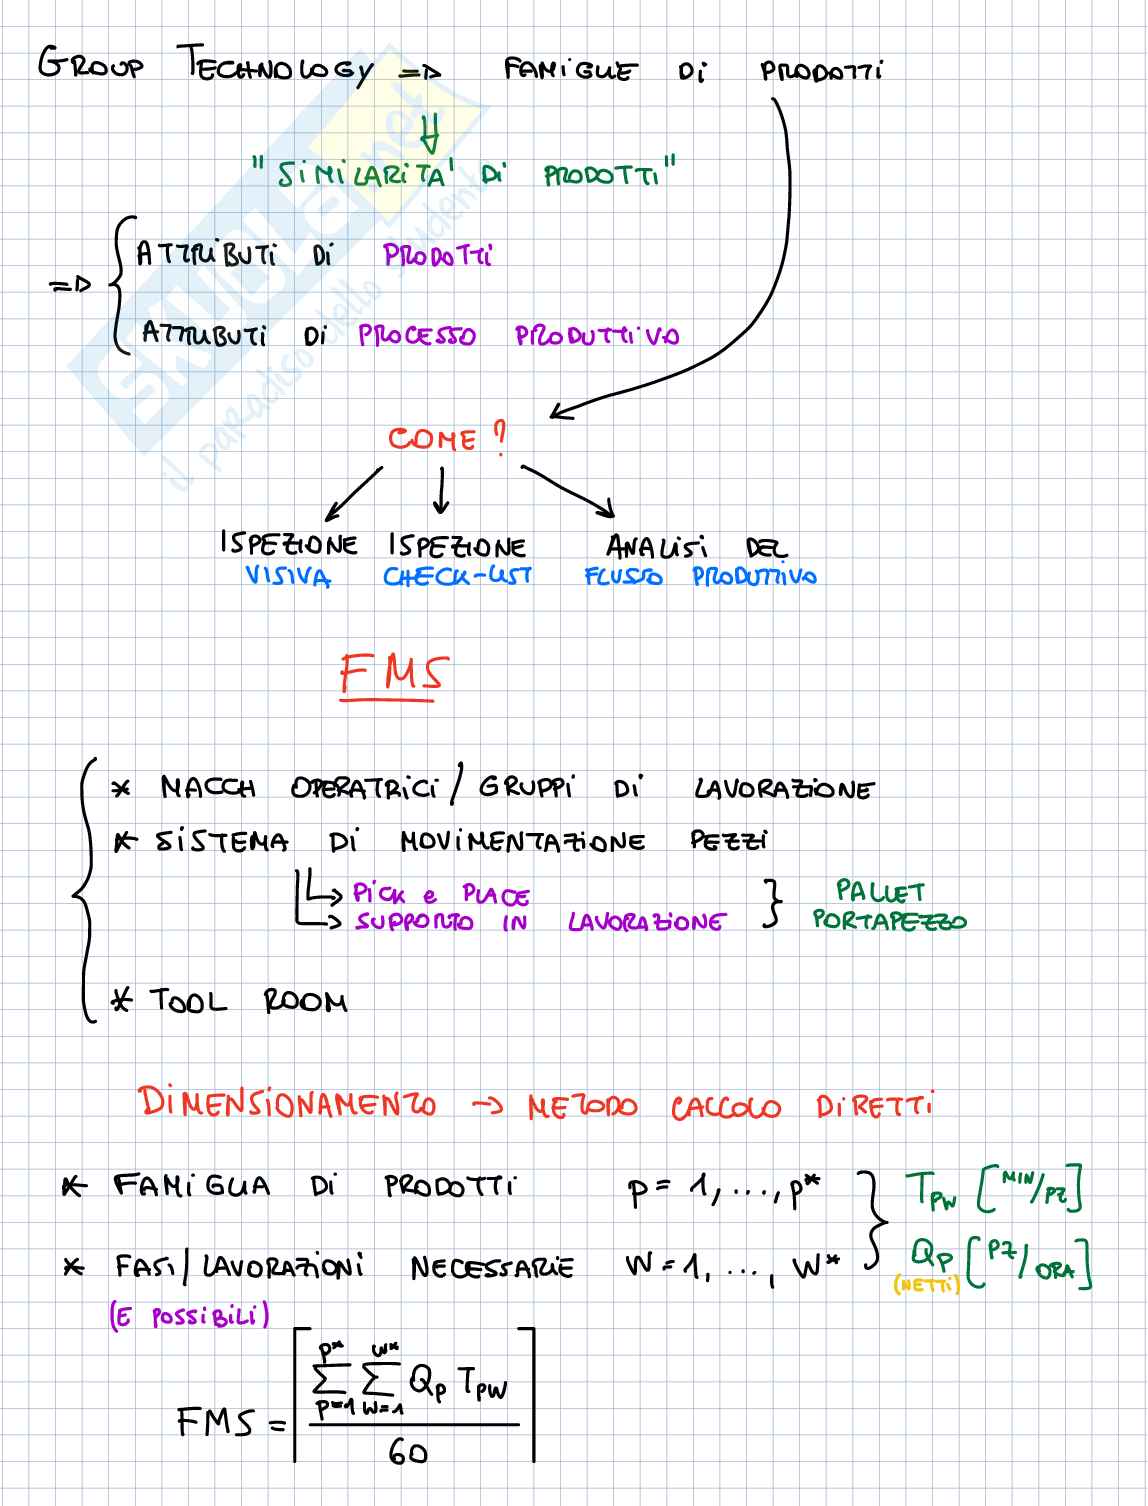 GROUP TECHNOLOGY => FAMIGLIE DI PRODOTTI
"SIMILARITA' DI PRODOTTI"
=> { ATTRIBUTI DI PRODOTTI
ATTRIBUTI DI PROCESSO PRODUTTIVO
COME?
ISPEZIONE VISIVA
ISPEZIONE CHECK-LIST
ANALISI DEL FLUSSO PRODUTTIVO
FMS
* MACCH OPERATRICI / GRUPPI DI LAVORAZIONE
* SISTEMA DI MOVIMENTAZIONE PEZZI
→ PICK e PLACE
→ SUPPORTO IN LAVORAZIONE } PALLET PORTAPEZZO
* TOOL ROOM
DIMENSIONAMENTO → METODO CALCOLO DIRETTI
* FAMIGLIA DI PRODOTTI p = 1, ..., p* } Tpw [MIN/PZ]
* FASI / LAVORAZIONI NECESSARIE W = 1, ..., W* Qp [PZ/ORA]
(E POSSIBILI) (NETTI)
FMS = ⌈ (∑_{p=1}^{p*} ∑_{w=1}^{w*} Qp Tpw) / 60 ⌉
SKUOLA.net
il paradiso dello studente